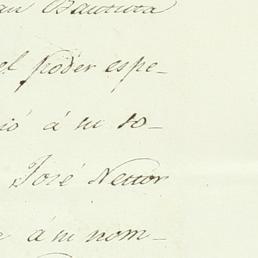 an Bautista
el poder espe-
ió á su so-
José Nestor
e á su nom-